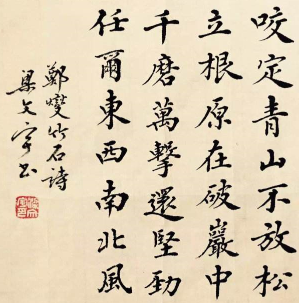 咬定青山不放松
立根原在破巖中
千磨萬擊還堅勁
任爾東西南北風
鄭燮竹石詩
梁文宇书